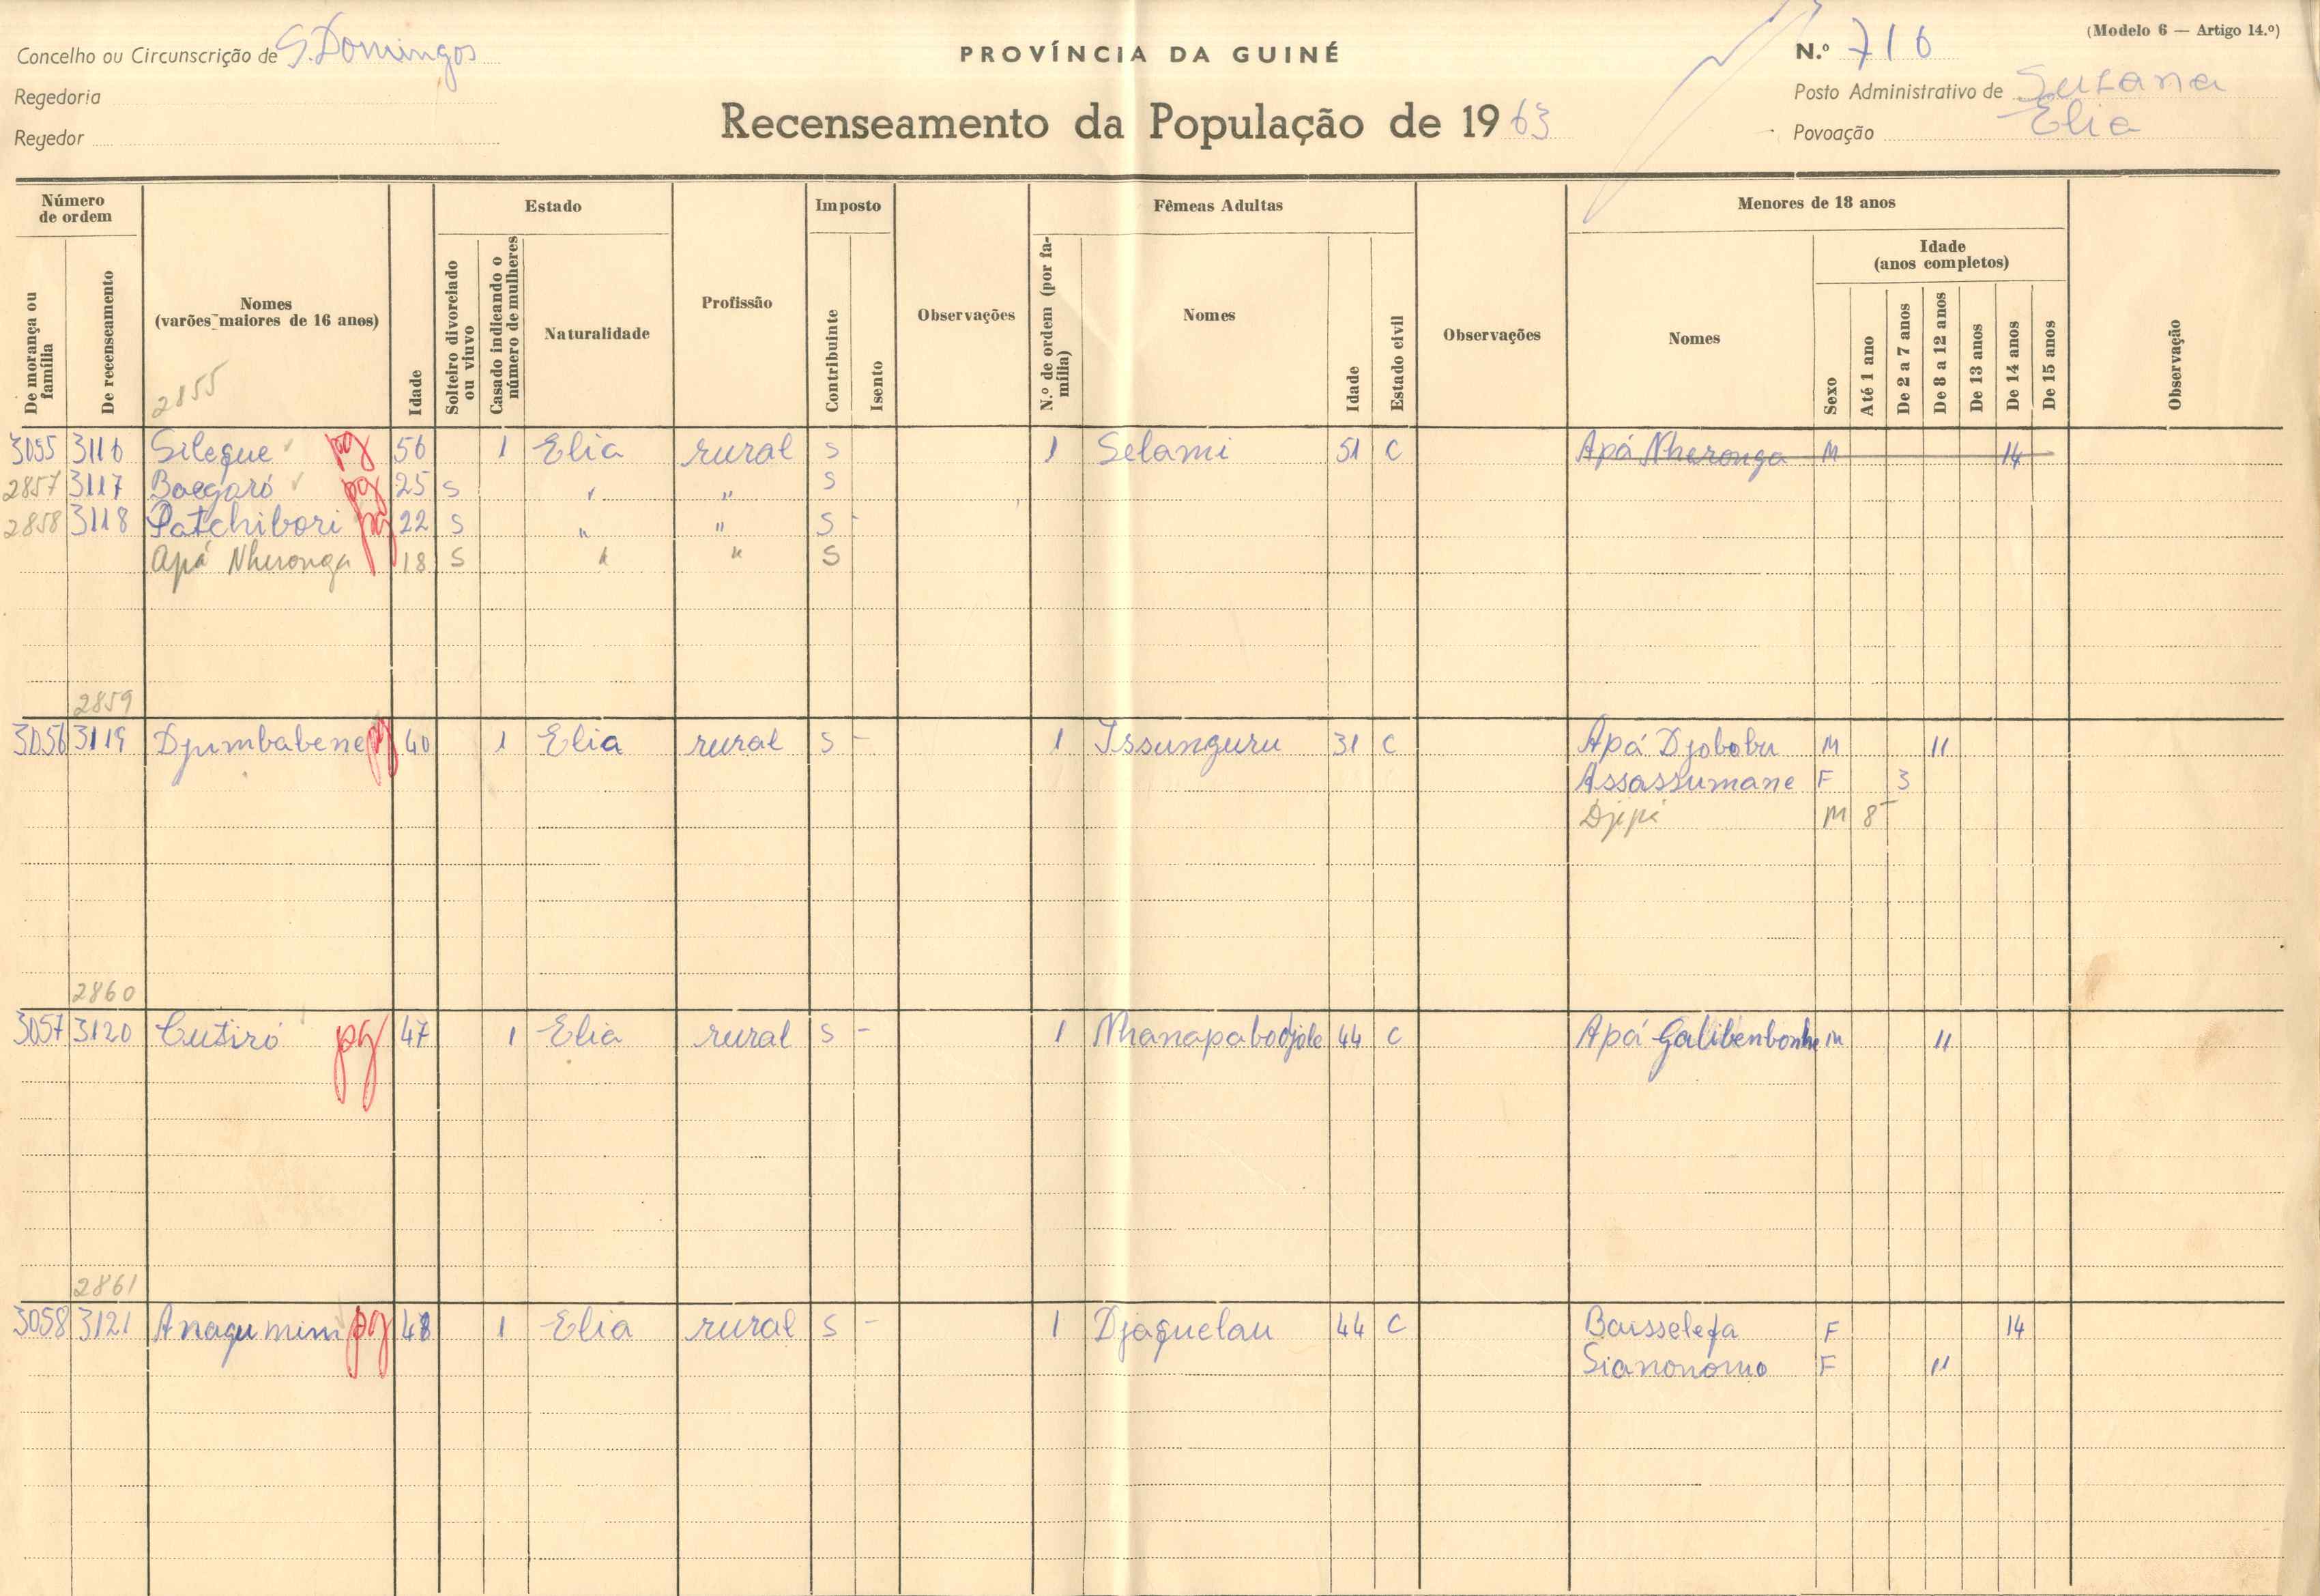 (Modelo 6 — Artigo 14.º)
Concelho ou Circunscrição de S. Domingos
PROVÍNCIA DA GUINÉ
N.º 716
Regedoria
Posto Administrativo de Suzana
Recenseamento da População de 1963
Regedor
Povoação Elia
Número de ordem
Estado
Imposto
Fêmeas Adultas
Menores de 18 anos
De morança ou família
De recenseamento
Nomes
(varões maiores de 16 anos)
2855
Idade
Solteiro divorciado ou viuvo
Casado indicando o número de mulheres
Naturalidade
Profissão
Contribuinte
Isento
Observações
N.º de ordem (por família)
Nomes
Idade
Estado civil
Observações
Nomes
Sexo
Idade
(anos completos)
Até 1 ano
De 2 a 7 anos
De 8 a 12 anos
De 13 anos
De 14 anos
De 15 anos
Observação
3055 3116 Silegue pg 56 1 Elia rural S 1 Selami 51 C Apá Nheronga M 14
2857 3117 Baegaró pg 25 S " " S
2858 3118 Patchibori pg 22 S " " S -
Apá Nheronga 18 S " " S
2859
3056 3119 Djumbabene pg 40 1 Elia rural S - 1 Issunguru 31 C Apá Djobobu M 11
Assassumane F 3
Djipi M 8
2860
3057 3120 Cutiró pg 47 1 Elia rural S - 1 Nhanapabodjole 44 C Apá Galibenbonhe M 11
2861
3058 3121 Anagumini pg 48 1 Elia rural S - 1 Djaguelau 44 C Baisselefa F 14
Sianonomo F 11